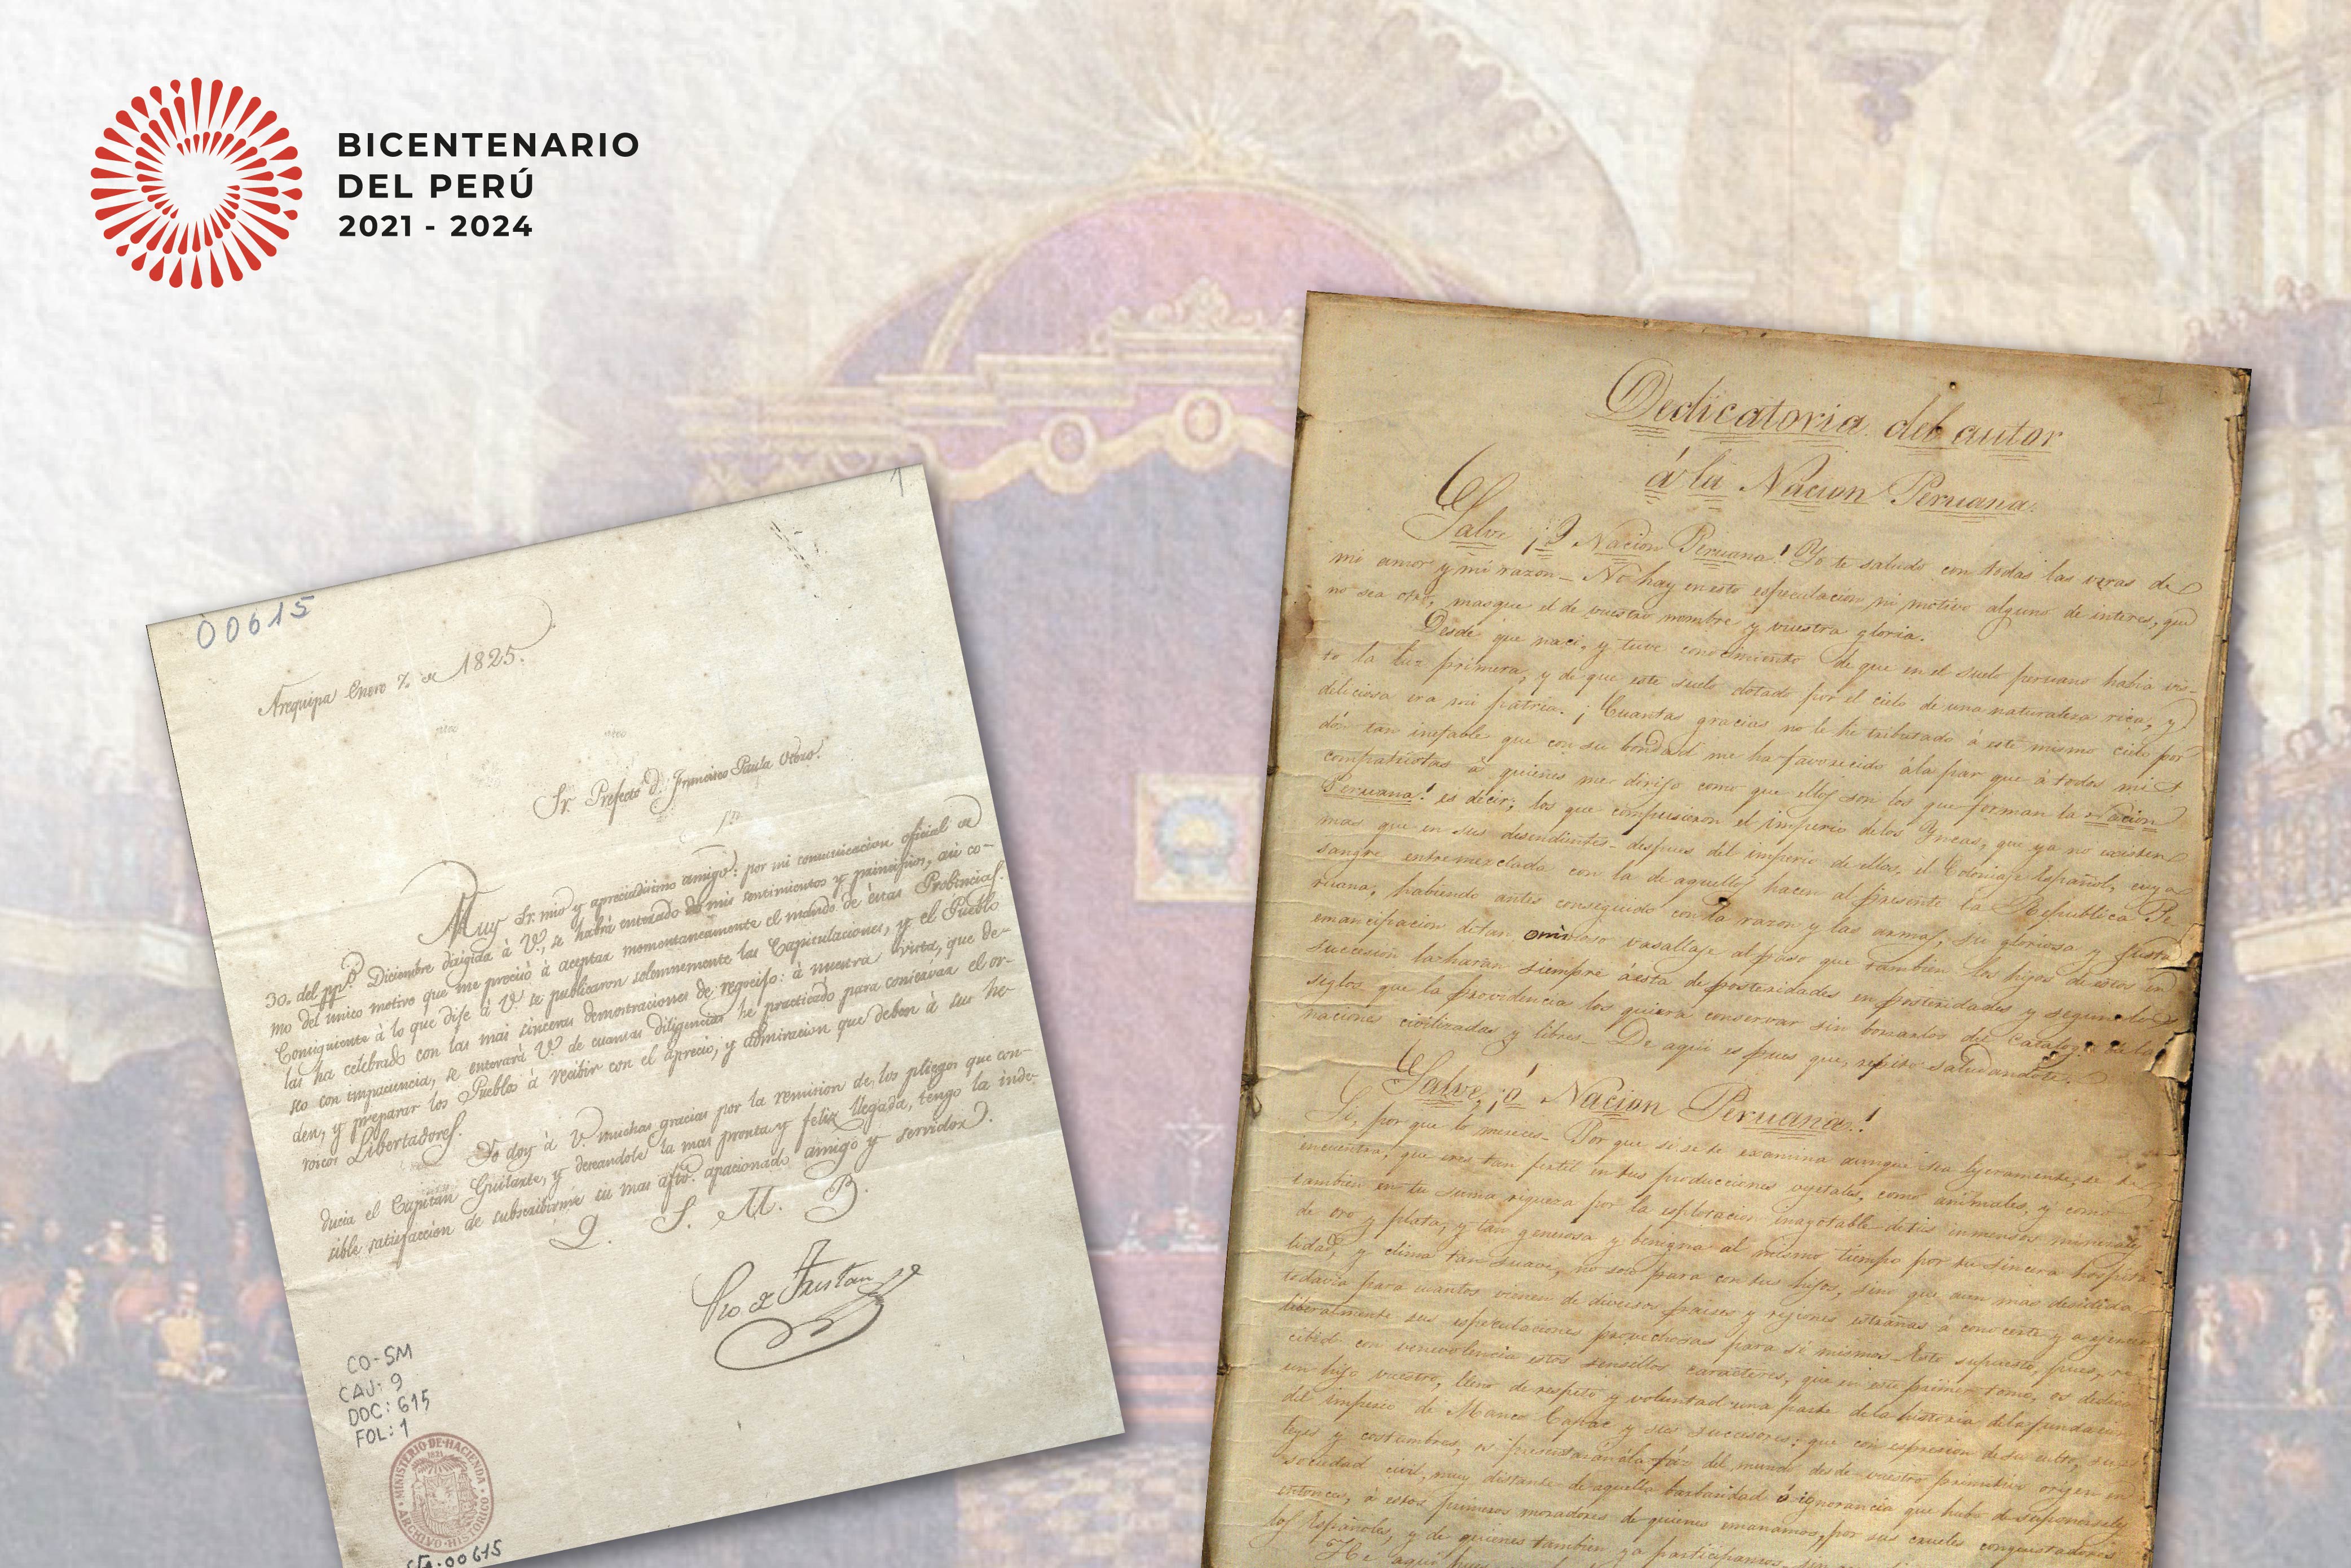 BICENTENARIO
DEL PERÚ
2021 - 2024
1
00615
Arequipa Enero 7 de 1825.
Sr. Prefecto D. Francisco Paula Otero.
Muy Sr. mio y apreciadisimo amigo: por mi comunicacion oficial de
30. del pp.º Diciembre dirigida à V., se habrá enterado de mis sentimientos y principios, asi co-
mo del unico motivo que me precisó à aceptar momentaneamente el mando de estas Provincias.
Consiguiente à lo que dije à V. se publicaron solemnemente las Capitulaciones, y el Pueblo
las ha celebrado con las mas sinceras demostraciones de regocijo: à nuestra vista, que de-
seo con impaciencia, se enterará V. de cuantas diligencias hé practicado para conservar el or-
den, y preparar los Pueblos à recibir con el aprecio, y admiracion que deben à sus he-
roicos Libertadores.
Yo doy à V. muchas gracias por la remision de los pliegos que con-
ducia el Capitan Guilarte, y deseandole la mas pronta y feliz llegada, tengo la inde-
cible satisfaccion de subscribirme su mas afto. apacionado amigo y servidor.
Q. S. M. B.
Pio de Tristan
CO-SM
CAJ: 9
DOC: 615
FOL: 1
MINISTERIO DE HACIENDA
1821
ARCHIVO HISTORICO
00615
Dedicatoria del autor
á la Nacion Peruana.
Salve ¡O Nacion Peruana! Yo te saludo con todas las veras de
mi amor y mi razon_ No hay en esto especulacion ni motivo alguno de interes, que
no sea otro, mas que el de vuestro nombre y vuestra gloria.
Desde que naci, y tuve conocimiento de que en el suelo peruano habia vis-
to la luz primera, y de que este suelo dotado por el cielo de una naturaleza rica, y
deliciosa era mi patria. ¡Cuantas gracias no le hé tributado á este mismo cielo por
dón tan inefable que con su bondad me ha favorecido á la par que á todos mis
compatriotas á quienes me dirijo como que ellos son los que forman la Nacion
Peruana! es decir; los que compusieron el imperio de los Yncas, que ya no existen
mas que en sus desendientes_ despues del imperio de ellos, el Coloniaje Español, cuya
sangre entremezclada con la de aquellos hacen al presente la Republica Pe-
ruana, habiendo antes conseguido con la razon y las armas, su gloriosa y justa
emancipacion de tan ominoso vasallaje al paso que tambien los hijos de estos en
succesión la harán siempre á esta de posteridades en posteridades y segun los
siglos que la providencia los quiera conservar sin borrarlos del Catalogo de las
naciones civilizadas y libres_ De aqui es pues que, repito saludandote.
Salve, ¡ó Nacion Peruana!
Si, por que lo mereces_ Por que si se te examina aunque sea lijeramente, se te
encuentra, que eres tan fertil en tus producciones vegetales, como animales, y como
tambien en tu suma riqueza por la esplotacion inagotable de tus inmensos minerales
de oro y plata, y tan generosa y benigna al mismo tiempo por tu sincera hospita-
lidad, y clima tan suave, no solo para con tus hijos, sino que aun mas decidida
todavia para cuantos vienen de diversos paises y rejiones estrañas á conocerte y a ejercer
liberalmente sus especulaciones provechosas para sí mismos_ Esto supuesto, pues, re-
cibid con benevolencia estos sensillos caracteres, que en este primer tomo, os dedica
un hijo vuestro, lleno de respeto y voluntad una parte de la historia de la fundacion
del imperio de Manco Capac y sus succesores; que con espresion de su culto, sus
leyes y costumbres, os presentaran á la fáz del mundo desde vuestro primitivo orijen en
sociedad civil, muy distante de aquella barbaridad é ignorancia que hubo de suponerseles
entonces, á estos primeros moradores de quienes emanamos, por sus crueles conquistadores
los Españoles, y de quienes tambien ya participamos
He aqui pues